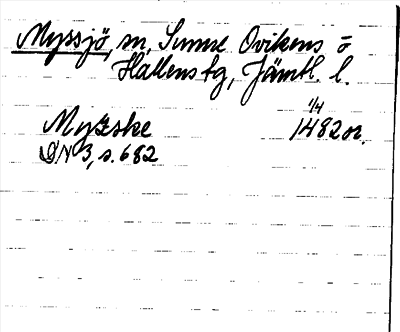 Myssjö, sn, Sunne Ovikens o
Hallens tg, Jämtl. l.
Myžske 1/4 1482 or.
DN 3, s. 682